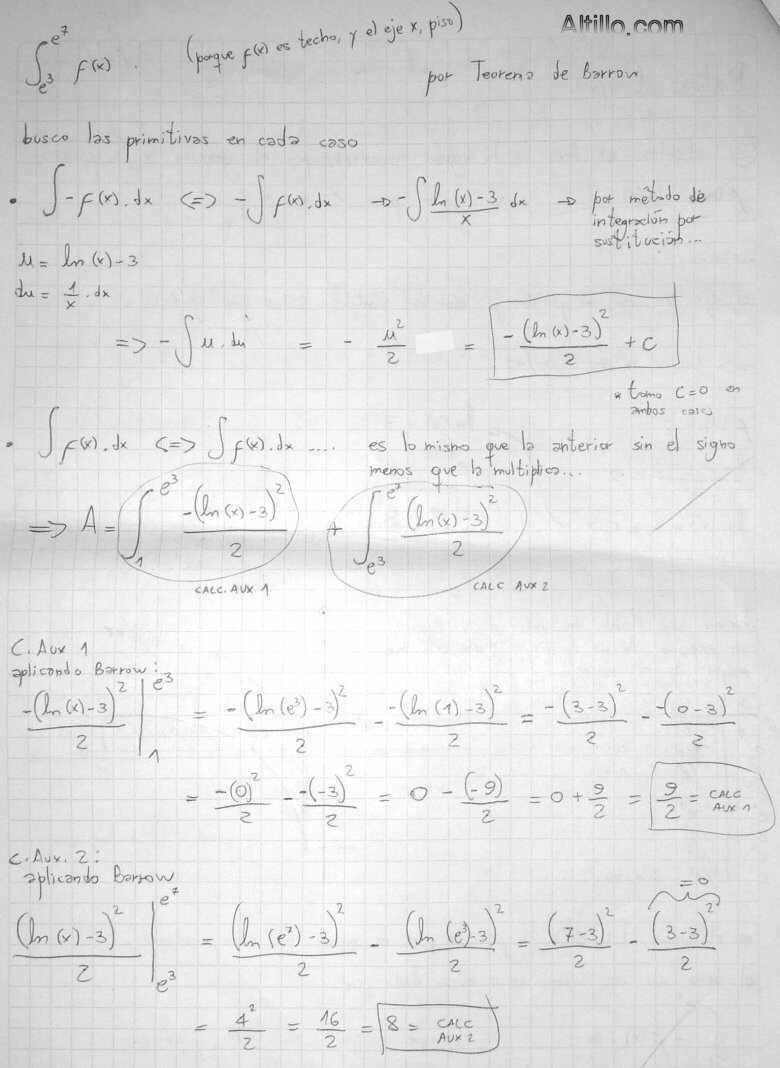 ∫_{e^3}^{e^7} f(x) . (porque f(x) es techo, y el eje x, piso)
Altillo.com
por Teorema de Barrow
busco las primitivas en cada caso
• ∫ -f(x).dx <=> -∫ f(x).dx → -∫ (ln(x)-3)/x dx → por método de
integración por
sustitución...
u = ln(x)-3
du = 1/x . dx
=> -∫ u.du = - u²/2 = -(ln(x)-3)²/2 + C
* tomo C=0 en
ambos calcs
• ∫ f(x).dx <=> ∫ f(x).dx .... es lo mismo que la anterior sin el signo
menos que la multiplica...
=> A = ∫_{1}^{e^3} -(ln(x)-3)²/2 + ∫_{e^3}^{e^7} (ln(x)-3)²/2
CALC. AUX 1 CALC AUX 2
C. AUX 1
aplicando Barrow:
-(ln(x)-3)²/2 |_{1}^{e^3} = -(ln(e^3)-3)²/2 - -(ln(1)-3)²/2 = -(3-3)²/2 - -(0-3)²/2
= -(0)²/2 - -(-3)²/2 = 0 - (-9)/2 = 0 + 9/2 = 9/2 = CALC AUX 1
C. AUX. 2:
aplicando Barrow
(ln(x)-3)²/2 |_{e^3}^{e^7} = (ln(e^7)-3)²/2 - (ln(e^3)-3)²/2 = (7-3)²/2 - (3-3)²/2 =0
= 4²/2 = 16/2 = 8 = CALC AUX 2